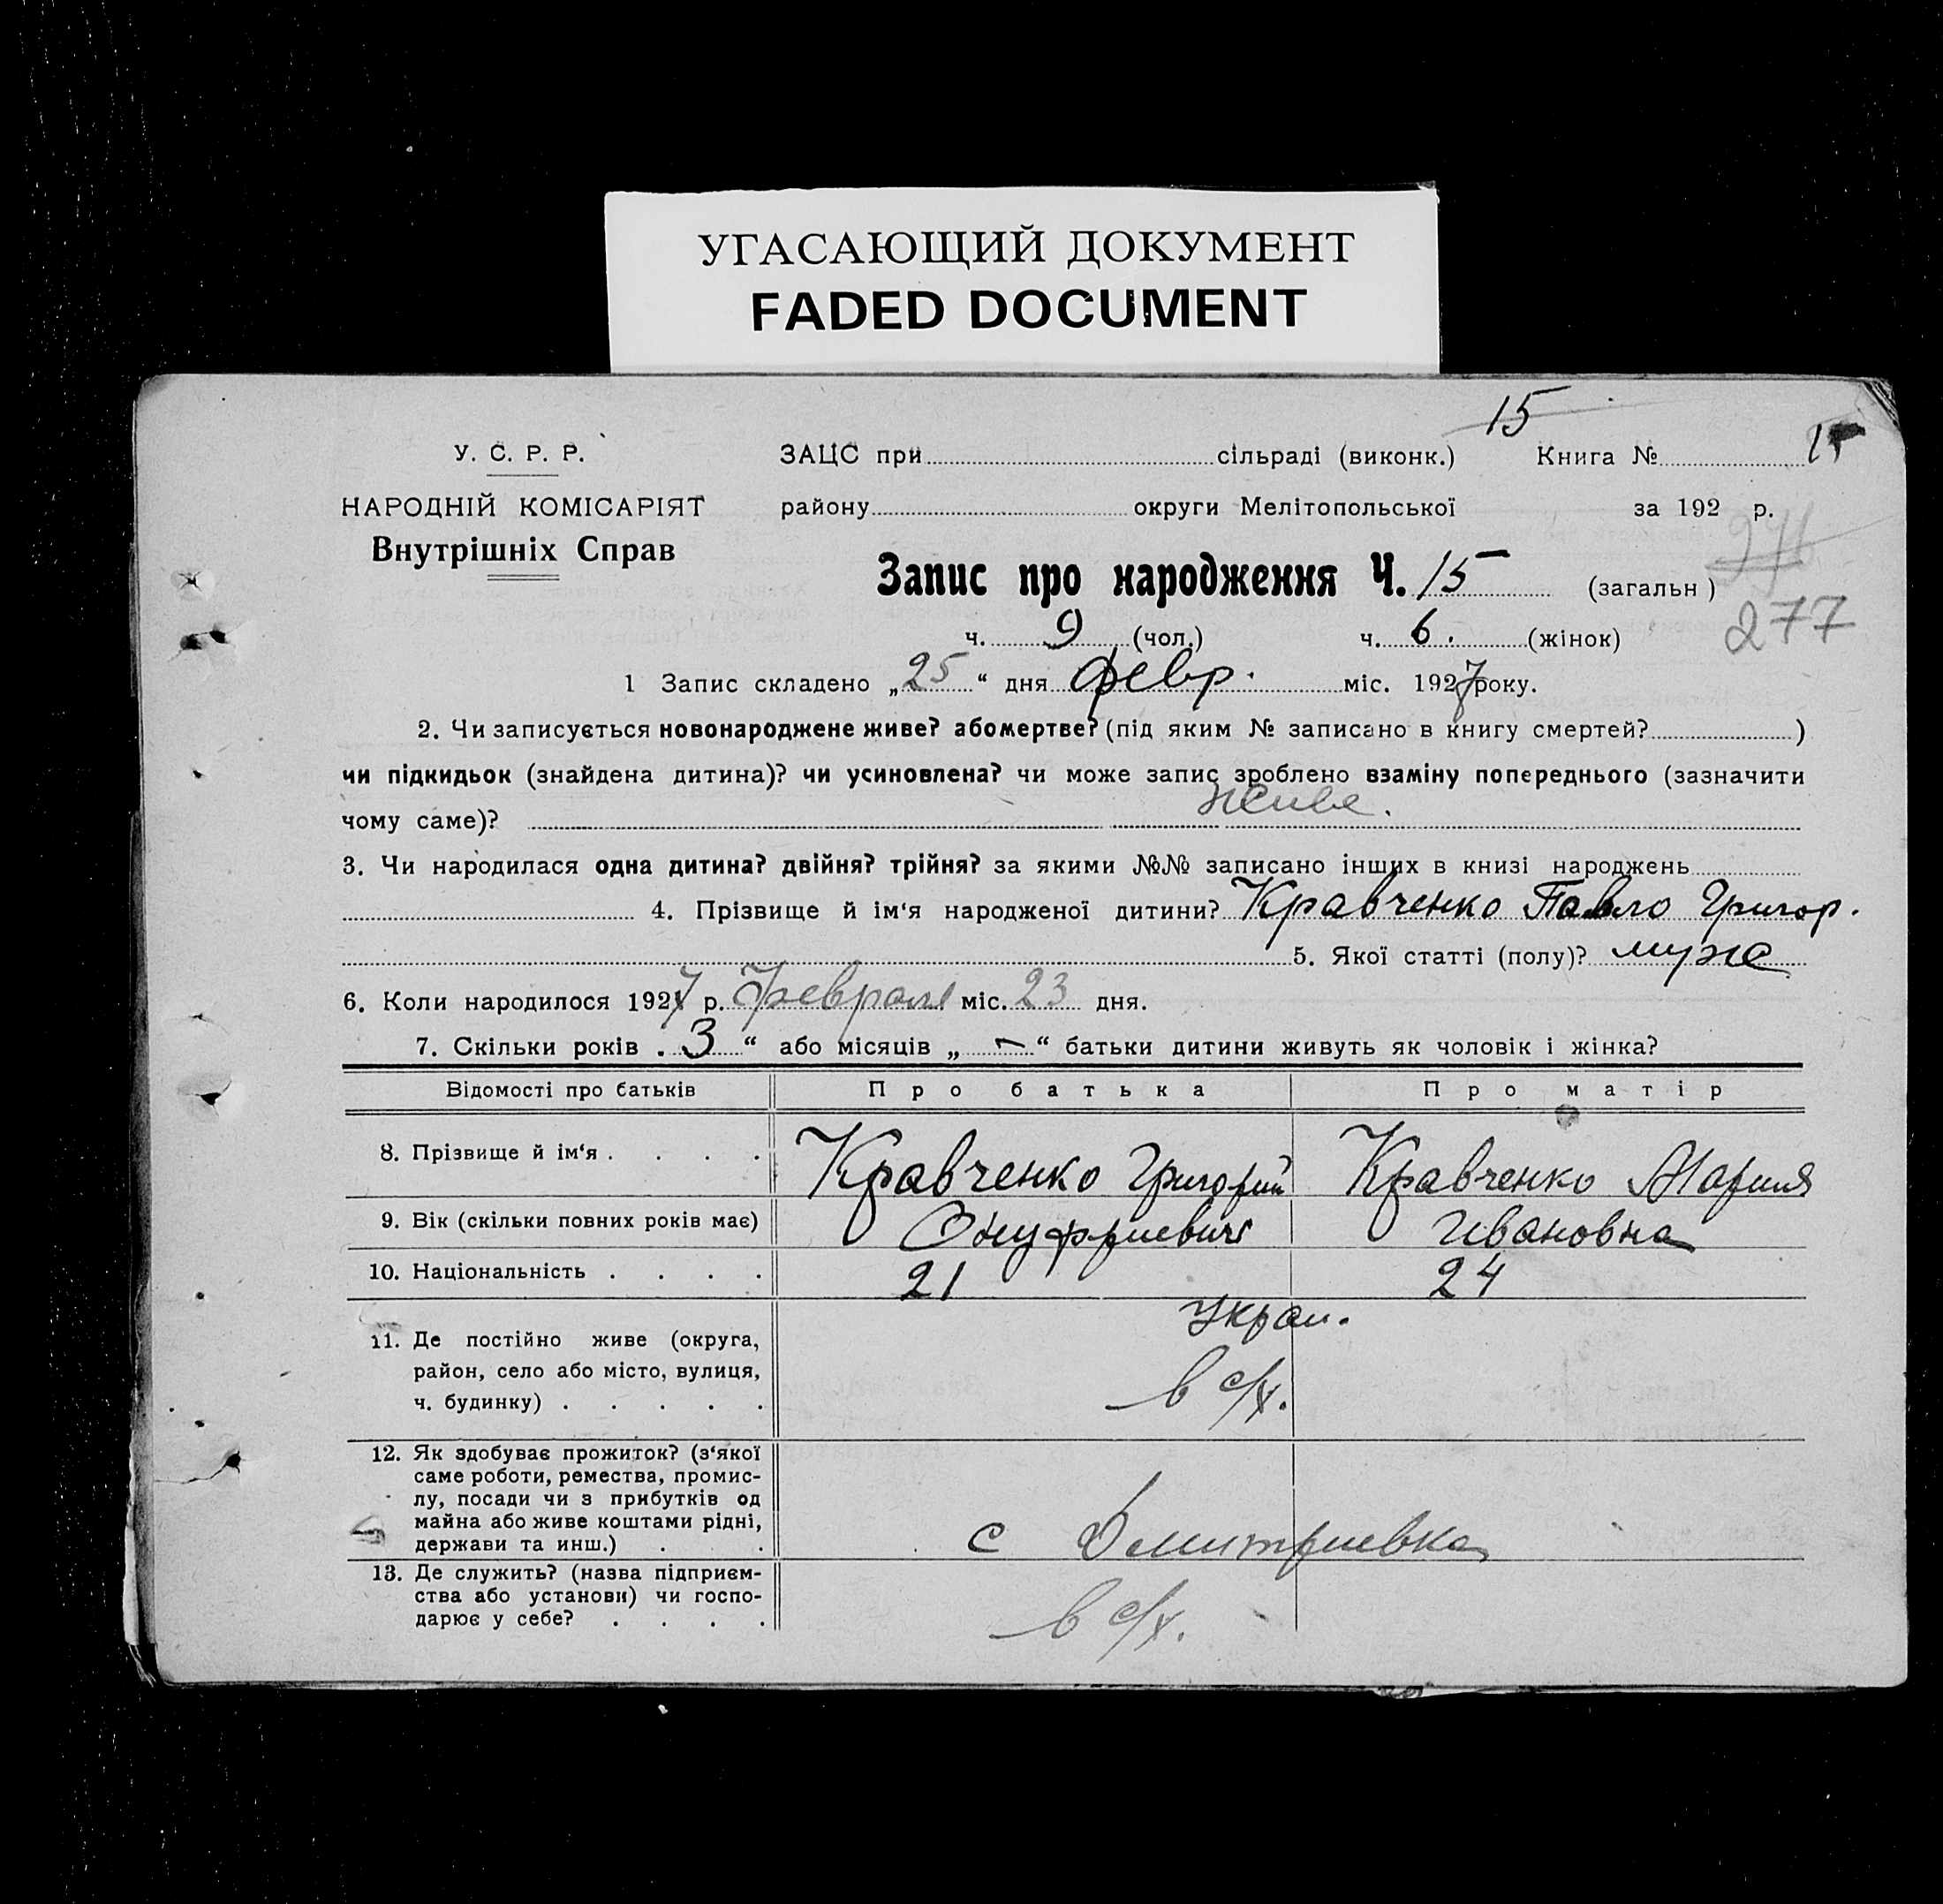 УГАСАЮЩИЙ ДОКУМЕНТ
FADED DOCUMENT
15
У. С. Р. Р. ЗАЦС при сільраді (виконк.) Книга № 15
НАРОДНІЙ КОМІСАРІЯТ району округи Мелітопольської за 192 р.
Внутрішніх Справ
276
Запис про народження Ч. 15 (загальн)
277
ч. 9 (чол.) ч. 6. (жінок)
1 Запис складено „25“ дня февр. міс. 1927 року.
2. Чи записується новонароджене живе? абомертве? (під яким № записано в книгу смертей? )
чи підкидьок (знайдена дитина)? чи усиновлена? чи може запис зроблено взаміну попереднього (зазначити
чому саме)? живе.
3. Чи народилася одна дитина? двійня? трійня? за якими №№ записано інших в книзі народжень
4. Прізвище й ім‘я народженої дитини? Кравченко Павло Григор.
5. Якої статті (полу)? муж
6. Коли народилося 1927 р. Февраля міс. 23 дня.
7. Скільки років „3“ або місяців „—“ батьки дитини живуть як чоловік і жінка?
Відомості про батьків Про батька Про матір
8. Прізвище й ім‘я . . . . Кравченко Григорий Кравченко Мария
9. Вік (скільки повних років має) Онуфриевич Ивановна
10. Національність . . . . 21 24
Украи.
11. Де постійно живе (округа,
район, село або місто, вулиця,
ч. будинку) . . . . . в с/х.
12. Як здобуває прожиток? (з‘якої
саме роботи, ремества, промис-
лу, посади чи з прибутків од
майна або живе коштами рідні,
держави та инш.) . . с Дмитриевка
13. Де служить? (назва підприєм-
ства або установи) чи госпо-
дарює у себе? . . . . в с/х.